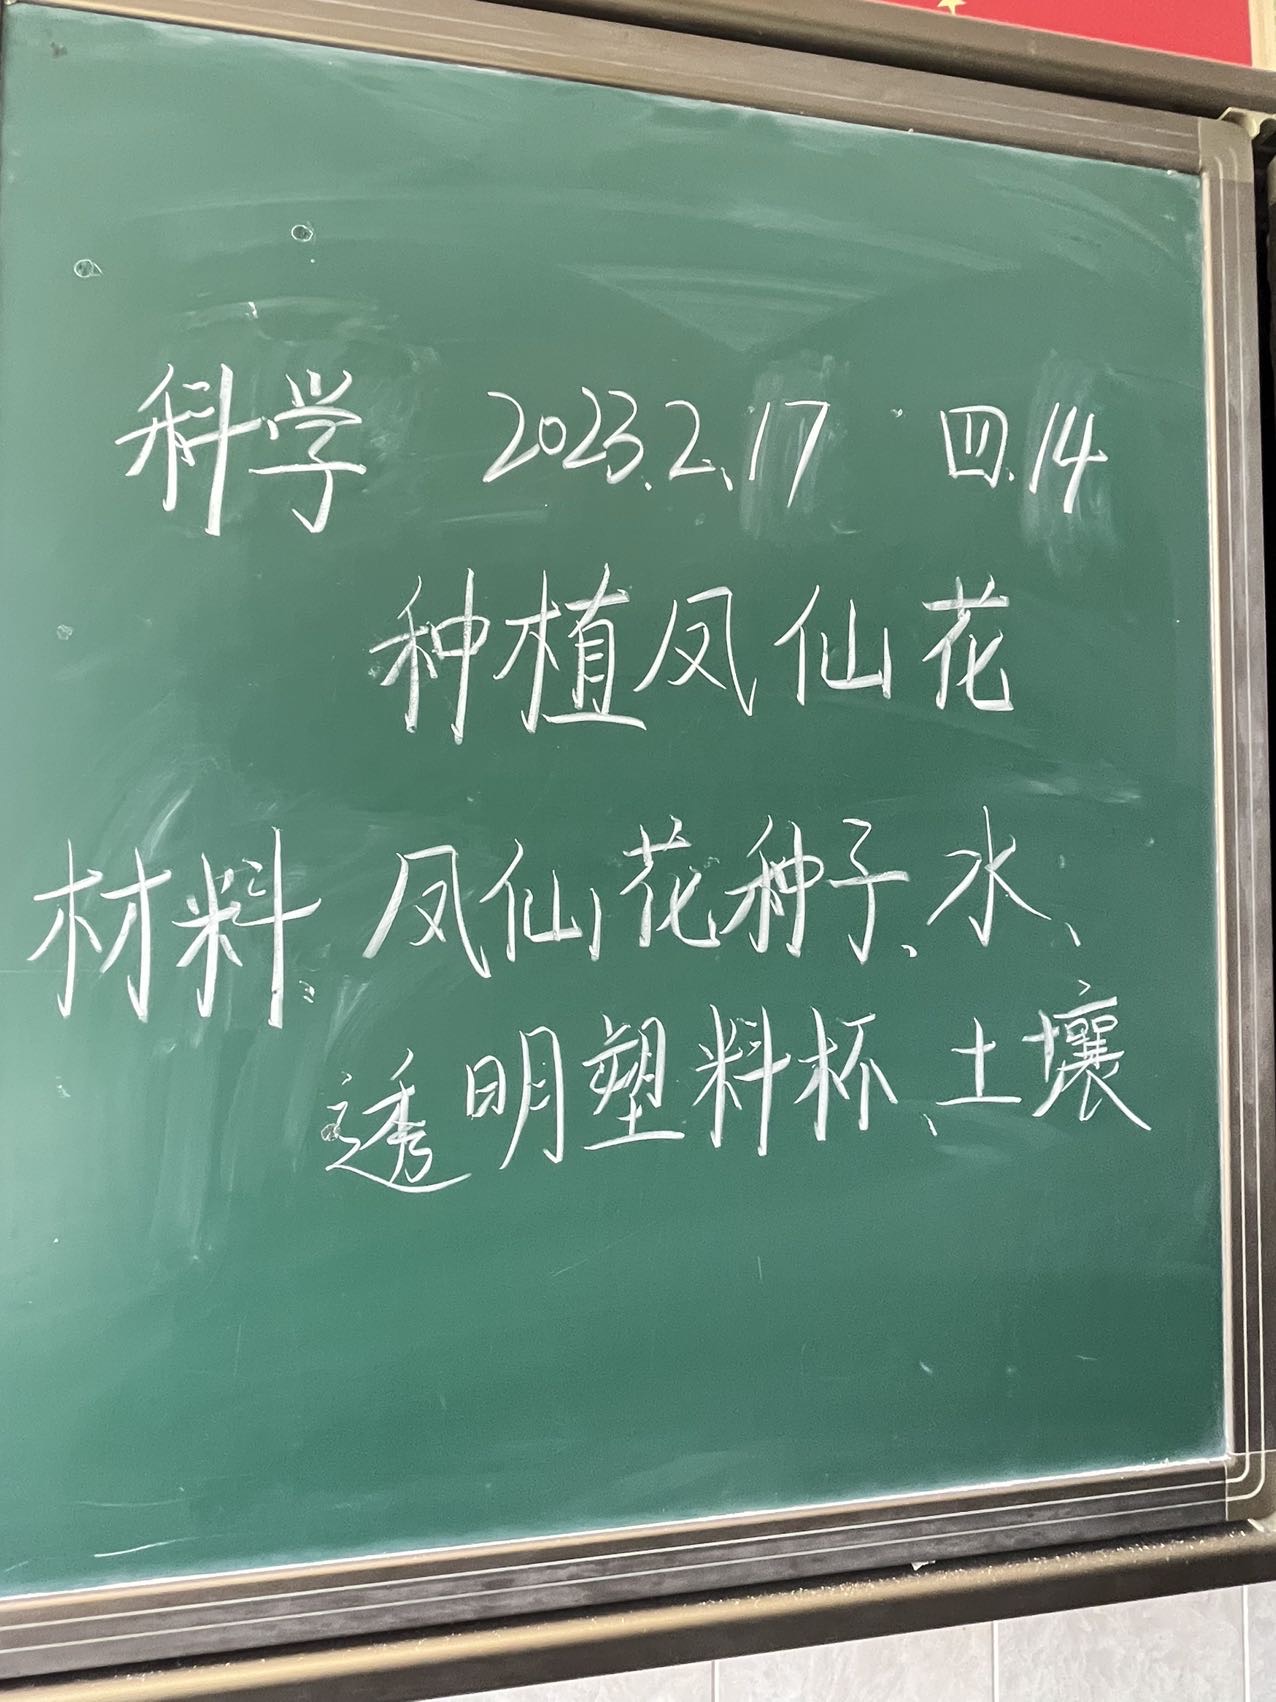 科学 2023.2.17 四.14
种植凤仙花
材料:凤仙花种子、水、
透明塑料杯、土壤